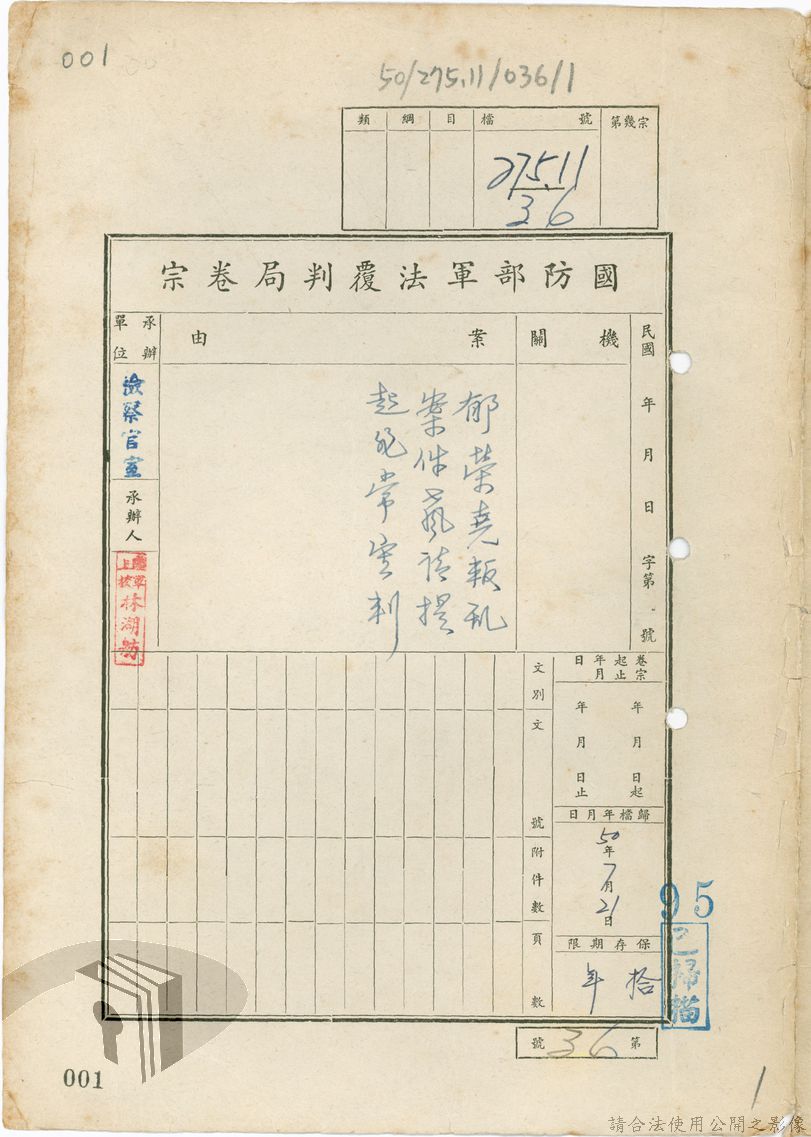 001
50/275.11/036/1
類 綱 目 檔 號 第幾宗
275.11
36
國防部軍法覆判局卷宗
民國 年 月 日 字第 號
機關
案由
承辦單位
郁荣堯叛乱
案件聲請提
起非常審判
檢察官室
承辦人
林湖舫
卷宗起止年月日
年 月 日起
年 月 日止
歸檔年月日
50年7月21日
保存期限
拾年
文別
文號
附件數
頁數
95
已掃描
第36號
001
1
請合法使用公開之影像